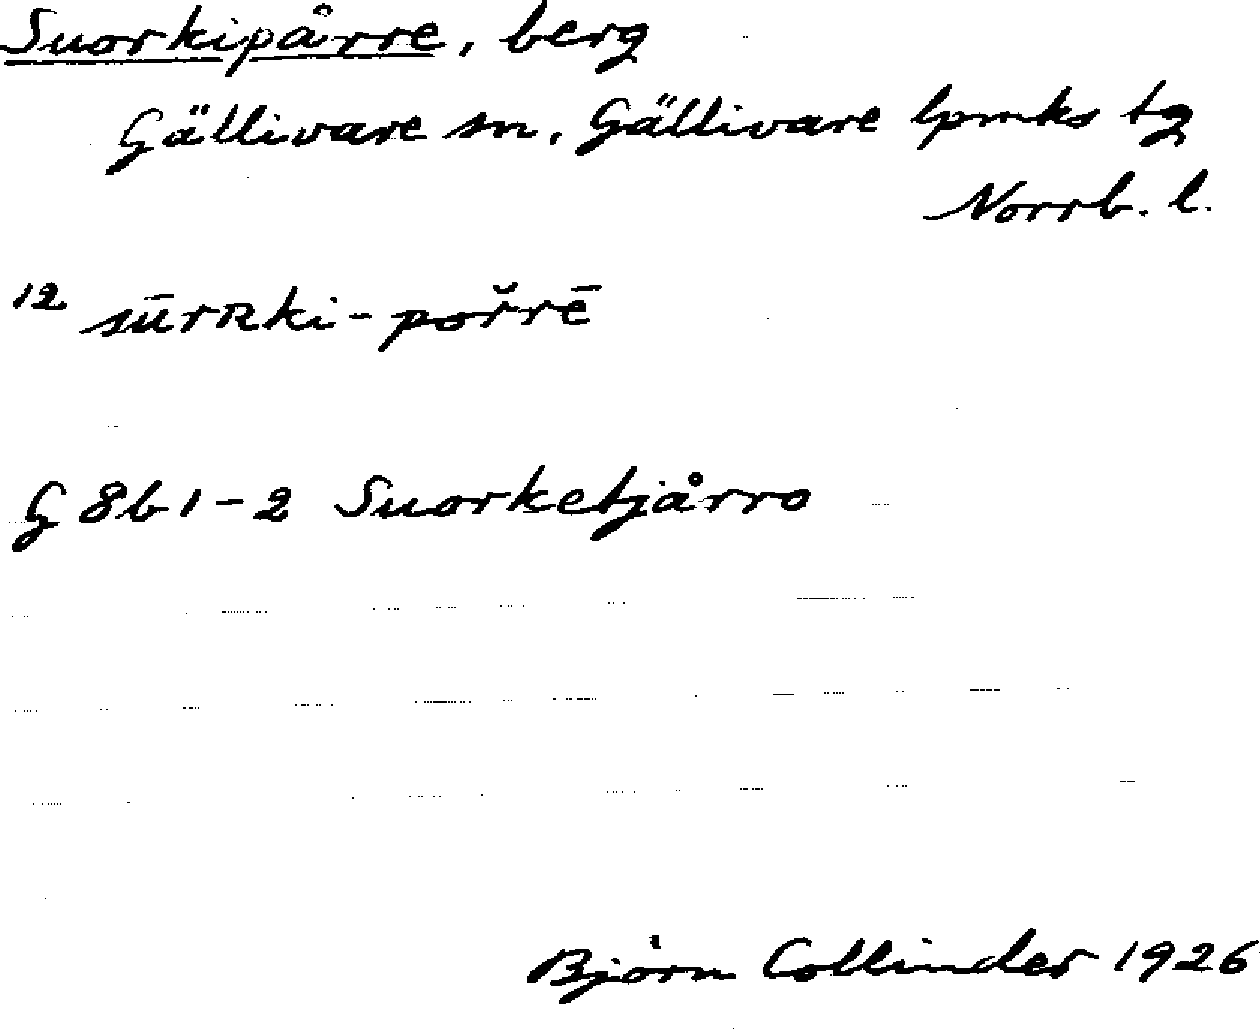 Suorkipårre, berg
Gällivare sn, Gällivare lpmks tg
Norrb. l.
12 sūrʀki-pořrē
G 8b 1-2 Suorketjårro
Björn Collinder 1926